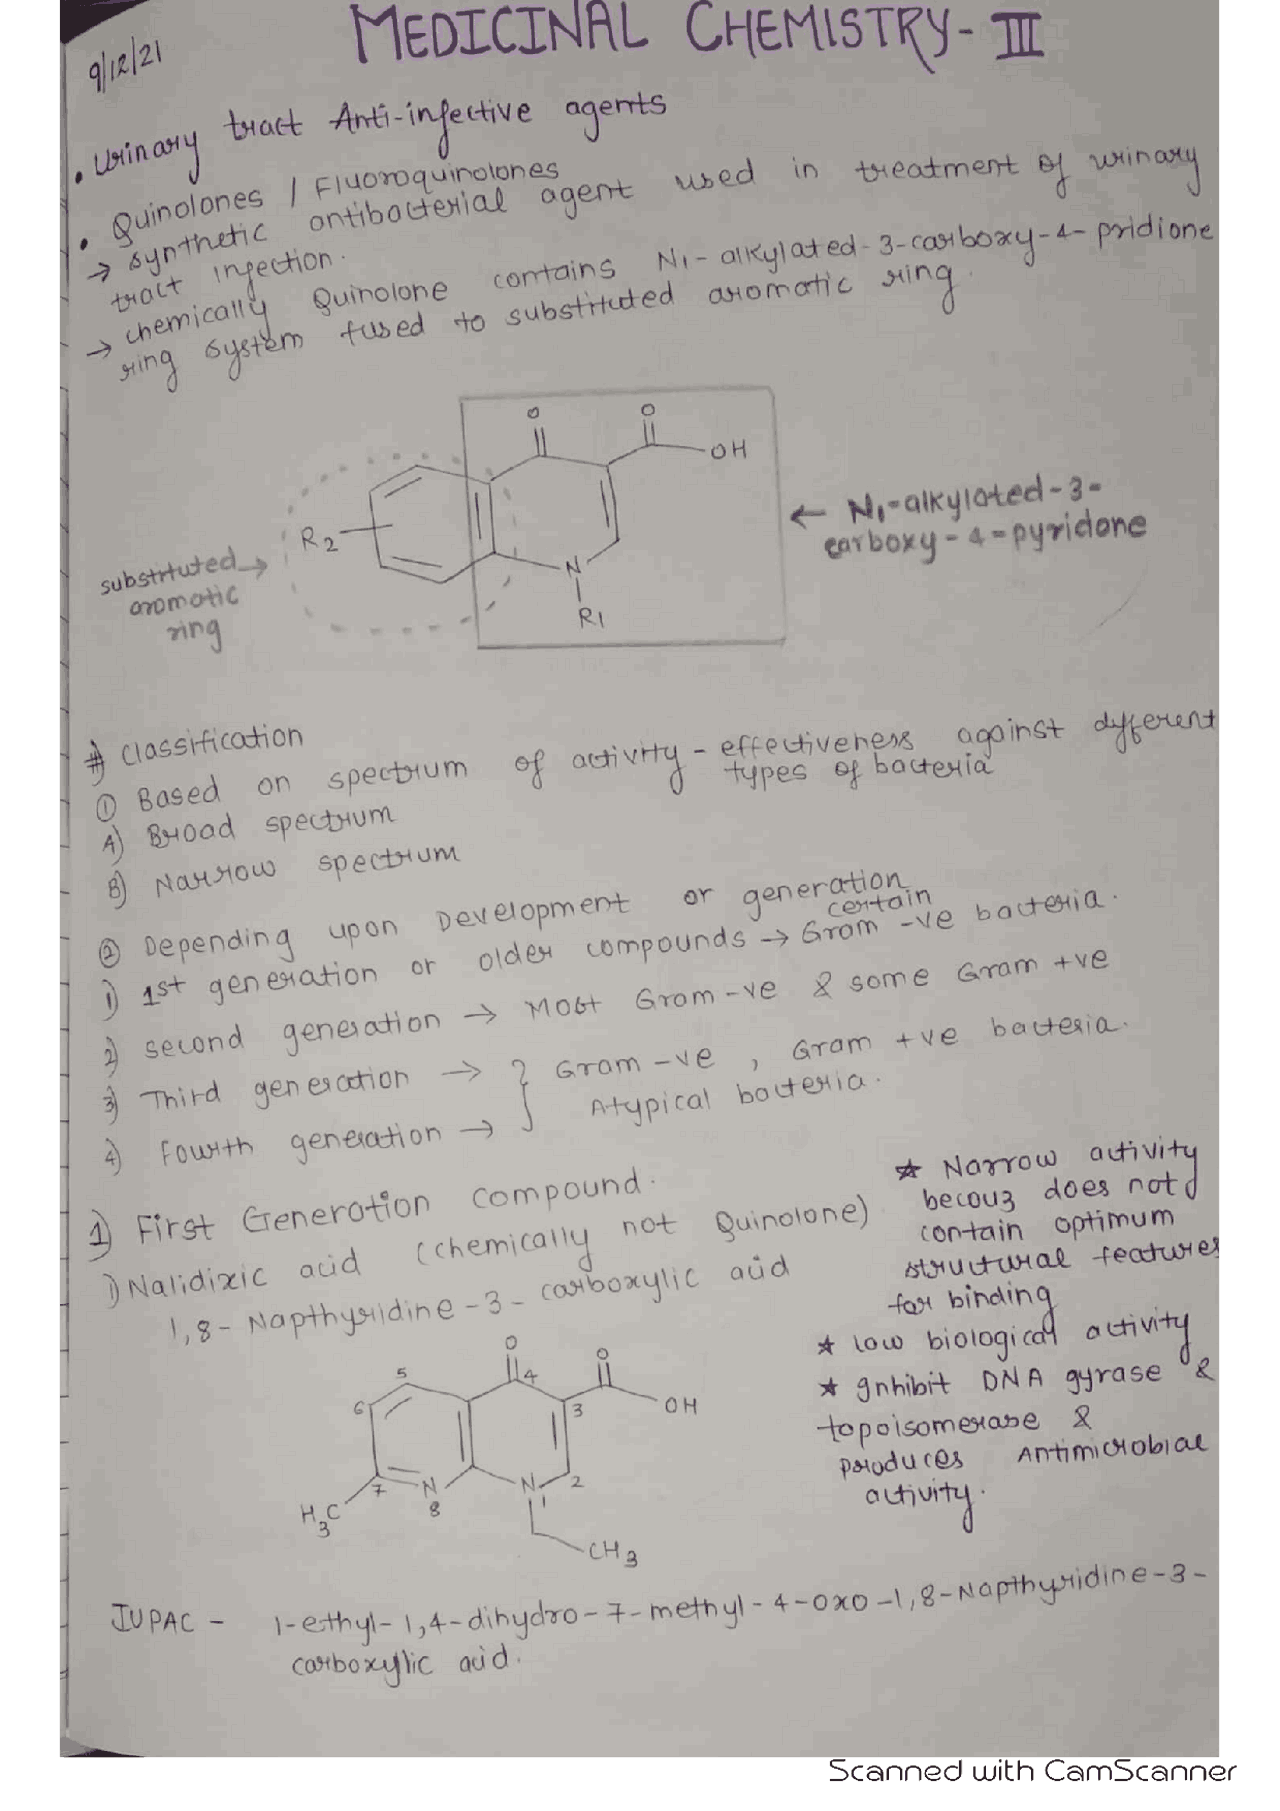 MEDICINAL CHEMISTRY-III
9/12/21
• Urinary tract Anti-infective agents
• Quinolones / Fluoroquinolones
→ synthetic antibacterial agent used in treatment of urinary
tract infection.
→ chemically Quinolone contains N1-alkylated-3-carboxy-4-pridione
ring system fused to substituted aromatic ring.
O
O
OH
R2
N
R1
substituted →
aromatic
ring
← N1-alkylated-3-
carboxy-4-pyridone
# Classification
① Based on spectrum of activity - effectiveness against different
types of bacteria
A) Broad spectrum
B) Narrow spectrum
② Depending upon Development or generation
1) 1st generation or older compounds → certain Gram -ve bacteria.
2) second generation → Most Gram-ve & some Gram +ve
3) Third generation → } Gram -ve, Gram +ve bacteria.
4) Fourth generation → Atypical bacteria.
1) First Generation compound.
1) Nalidixic acid (chemically not Quinolone)
1,8-Napthyridine-3-carboxylic acid
* Narrow activity
becouz does not
contain optimum
structural features
for binding
* low biological activity
* Inhibit DNA gyrase &
topoisomerase &
produces Antimicrobial
activity.
O
O
5
4
6
3
OH
7
N
N
2
H3C
8
1
CH3
IUPAC - 1-ethyl-1,4-dihydro-7-methyl-4-oxo-1,8-Napthyridine-3-
carboxylic acid.
Scanned with CamScanner